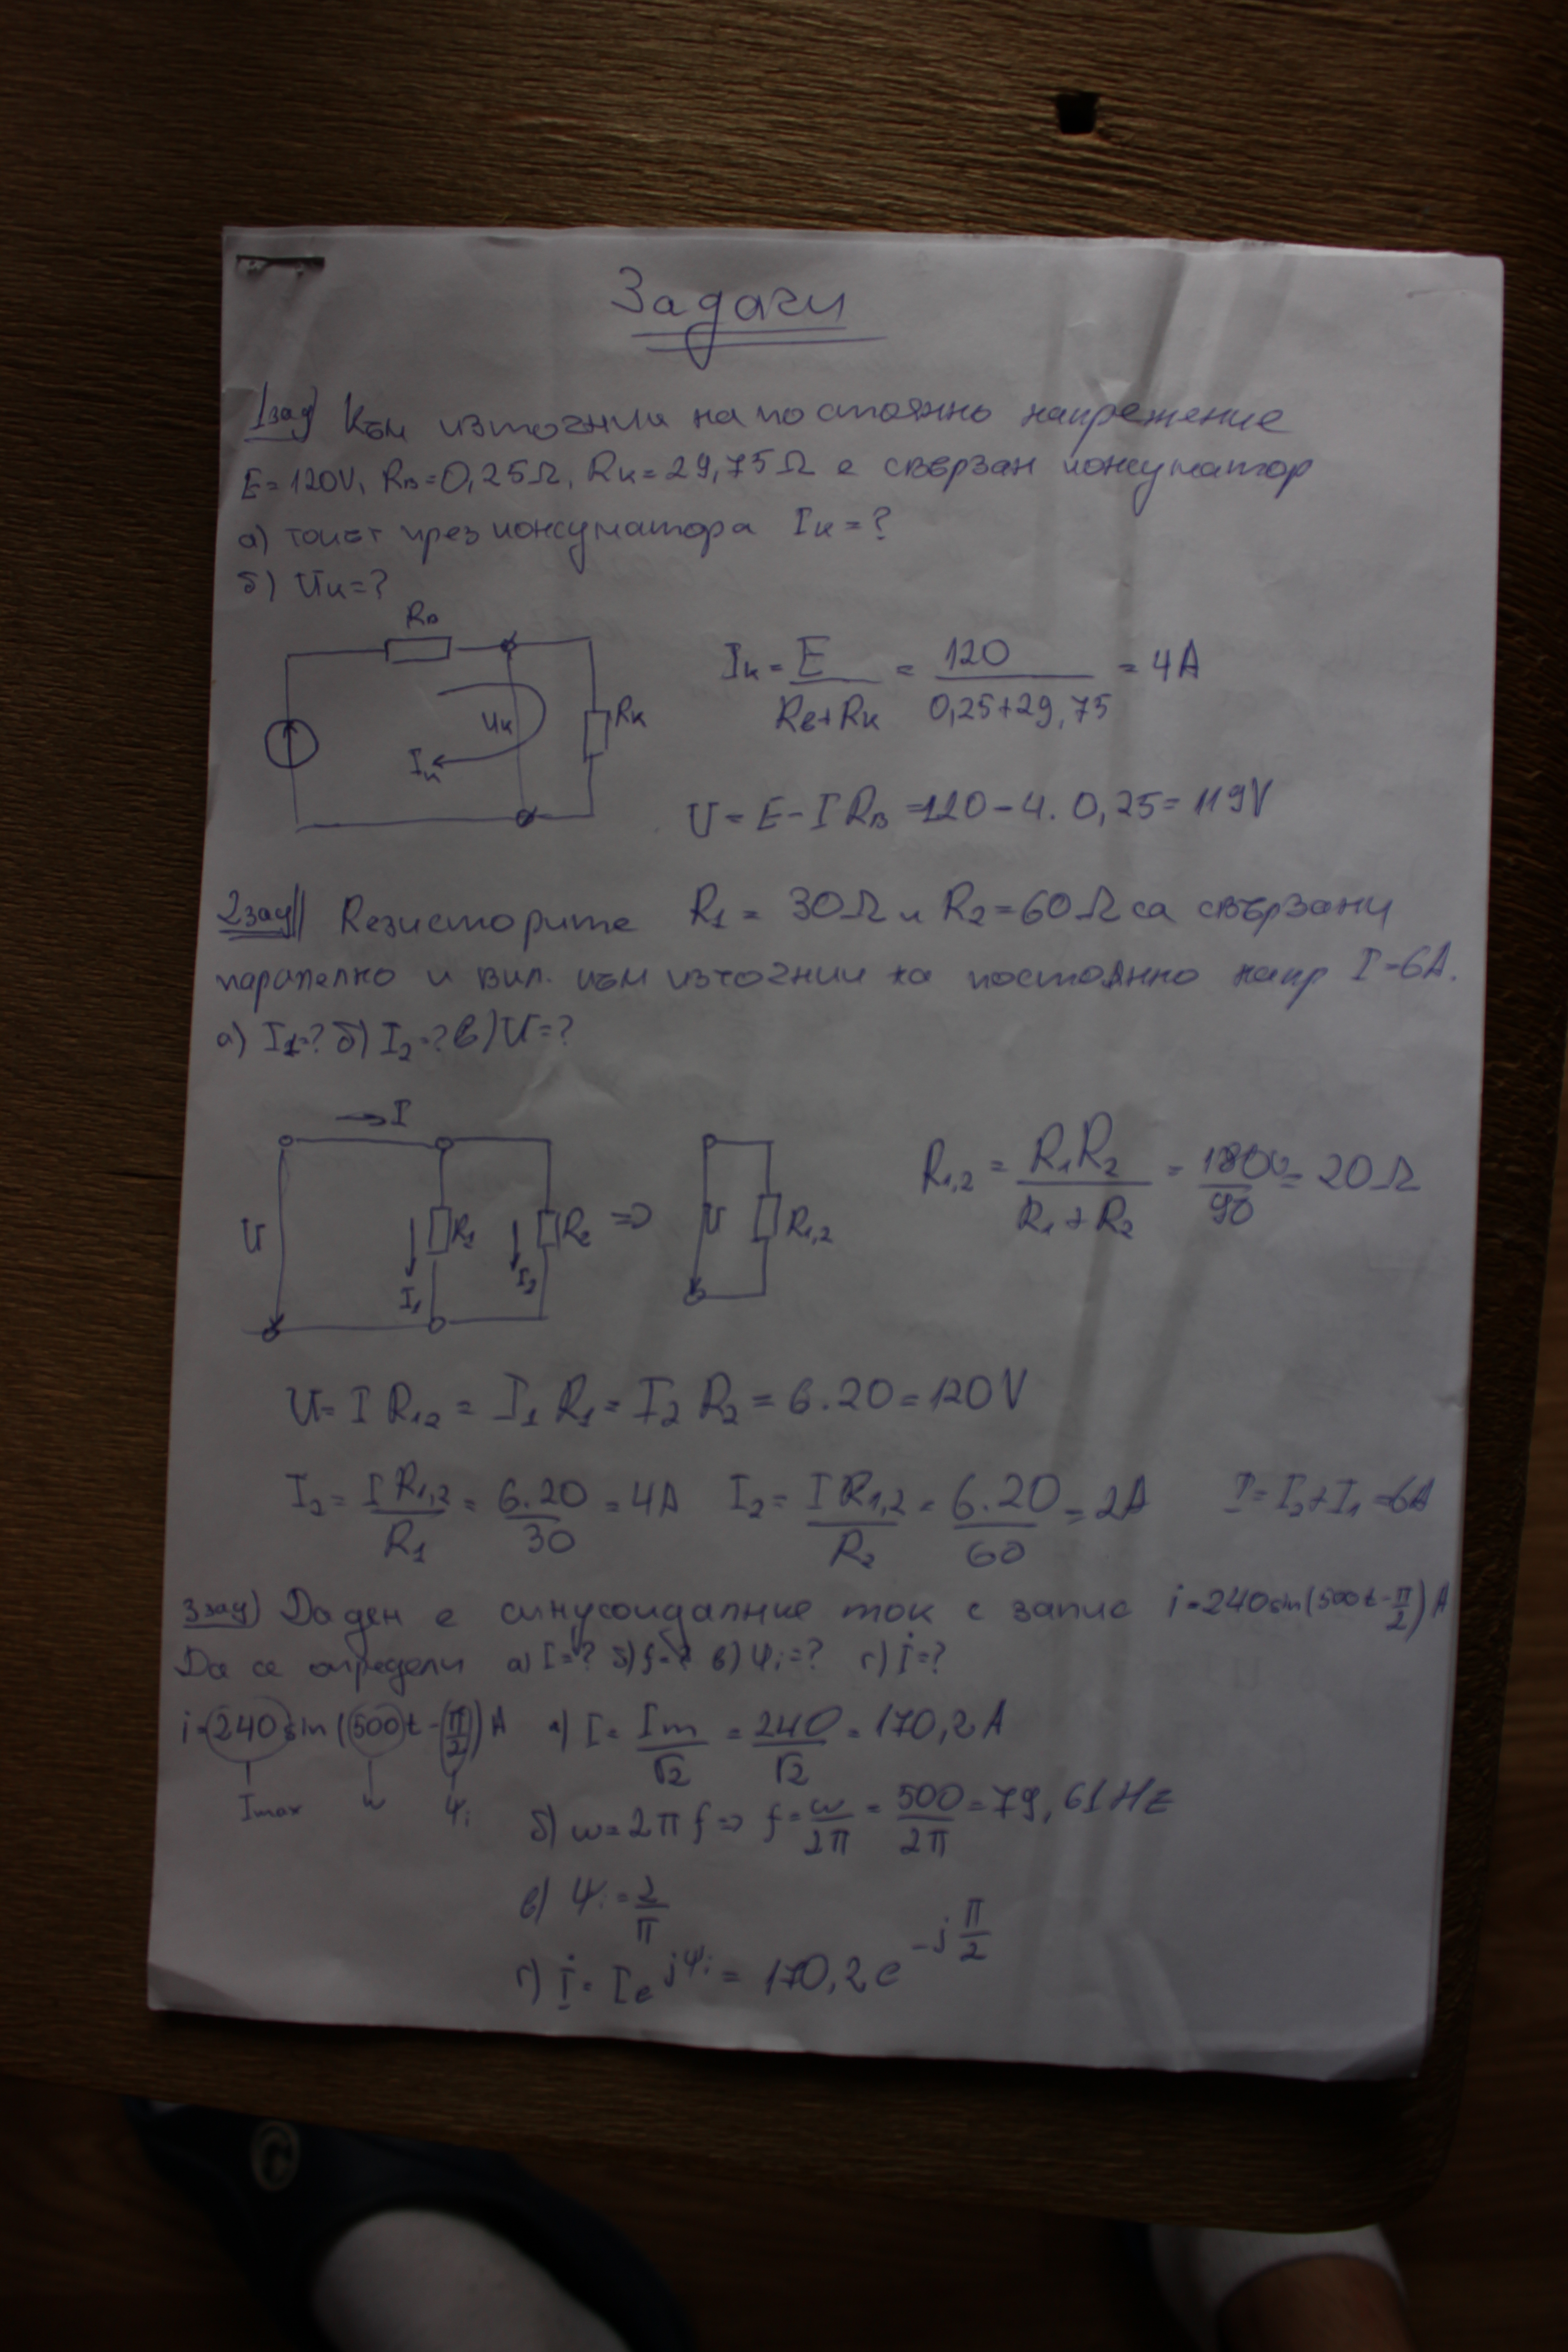 Задачи
1зад) Към източник на постоянно напрежение
E=120V, Rв=0,25Ω, Rк=29,75Ω е свързан консуматор
а) токът през консуматора Iк=?
б) Uк=?
Rв
Uк
Rк
Iк
Iк = E / Rв+Rк = 120 / 0,25+29,75 = 4A
U = E - I Rв = 120 - 4. 0,25 = 119V
2зад) Rезисторите R1 = 30Ω и R2 = 60Ω са свързани
паралелно и вкл. към източник на постоянно напр I=6A.
а) I1=? б) I2=? в) U=?
→ I
U
R1
R2
⇒
U
R1,2
I1
I2
R1,2 = R1R2 / R1+R2 = 1800 / 90 = 20Ω
U = I R1,2 = I1 R1 = I2 R2 = 6.20 = 120V
I2 = I R1,2 / R1 = 6.20 / 30 = 4A I2 = I R1,2 / R2 = 6.20 / 60 = 2A I = I2+I1 = 6A
3зад) Даден е синусоидалние ток с запис i=240sin(500t-π/2)A
Да се определи а) I=? б) f=? в) Ψi=? г) İ=?
i=240sin(500t-(π/2))A а) I = Im / √2 = 240 / √2 = 170,2A
Imax ω Ψi
б) ω=2πf ⇒ f = ω / 2π = 500 / 2π = 79,61Hz
в) Ψi = 2 / π
г) İ = I e^jΨi = 170,2 e^-jπ/2